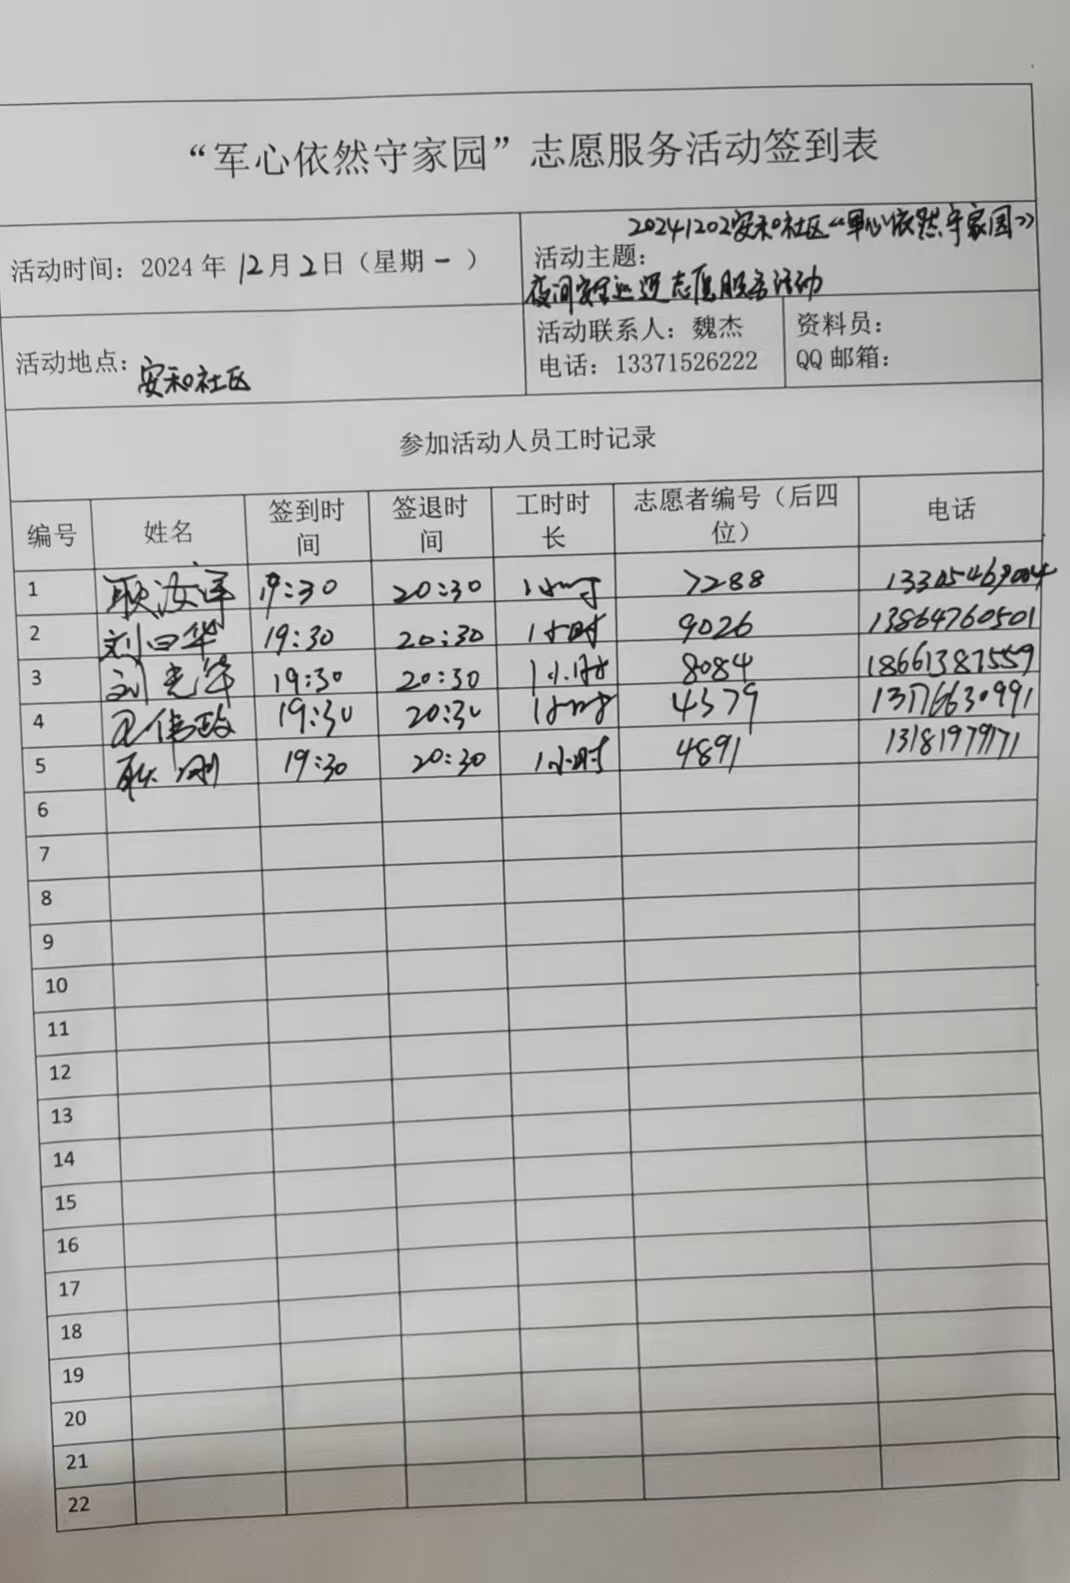 “军心依然守家园”志愿服务活动签到表
活动时间：2024年12月2日（星期一）
20241202安和社区“军心依然守家园”
活动主题：
夜间安全巡逻志愿服务活动
活动地点：安和社区
活动联系人：魏杰
电话：13371526222
资料员：
QQ邮箱：
参加活动人员工时记录
编号 姓名 签到时间 签退时间 工时时长 志愿者编号（后四位） 电话
1 19:30 20:30 1小时 7288 13305469004
2 刘四华 19:30 20:30 1小时 9026 13864760501
3 刘光华 19:30 20:30 1小时 8084 18661387559
4 19:30 20:30 1小时 4379 13176630991
5 耿刚 19:30 20:30 1小时 4891 13181979171
6
7
8
9
10
11
12
13
14
15
16
17
18
19
20
21
22